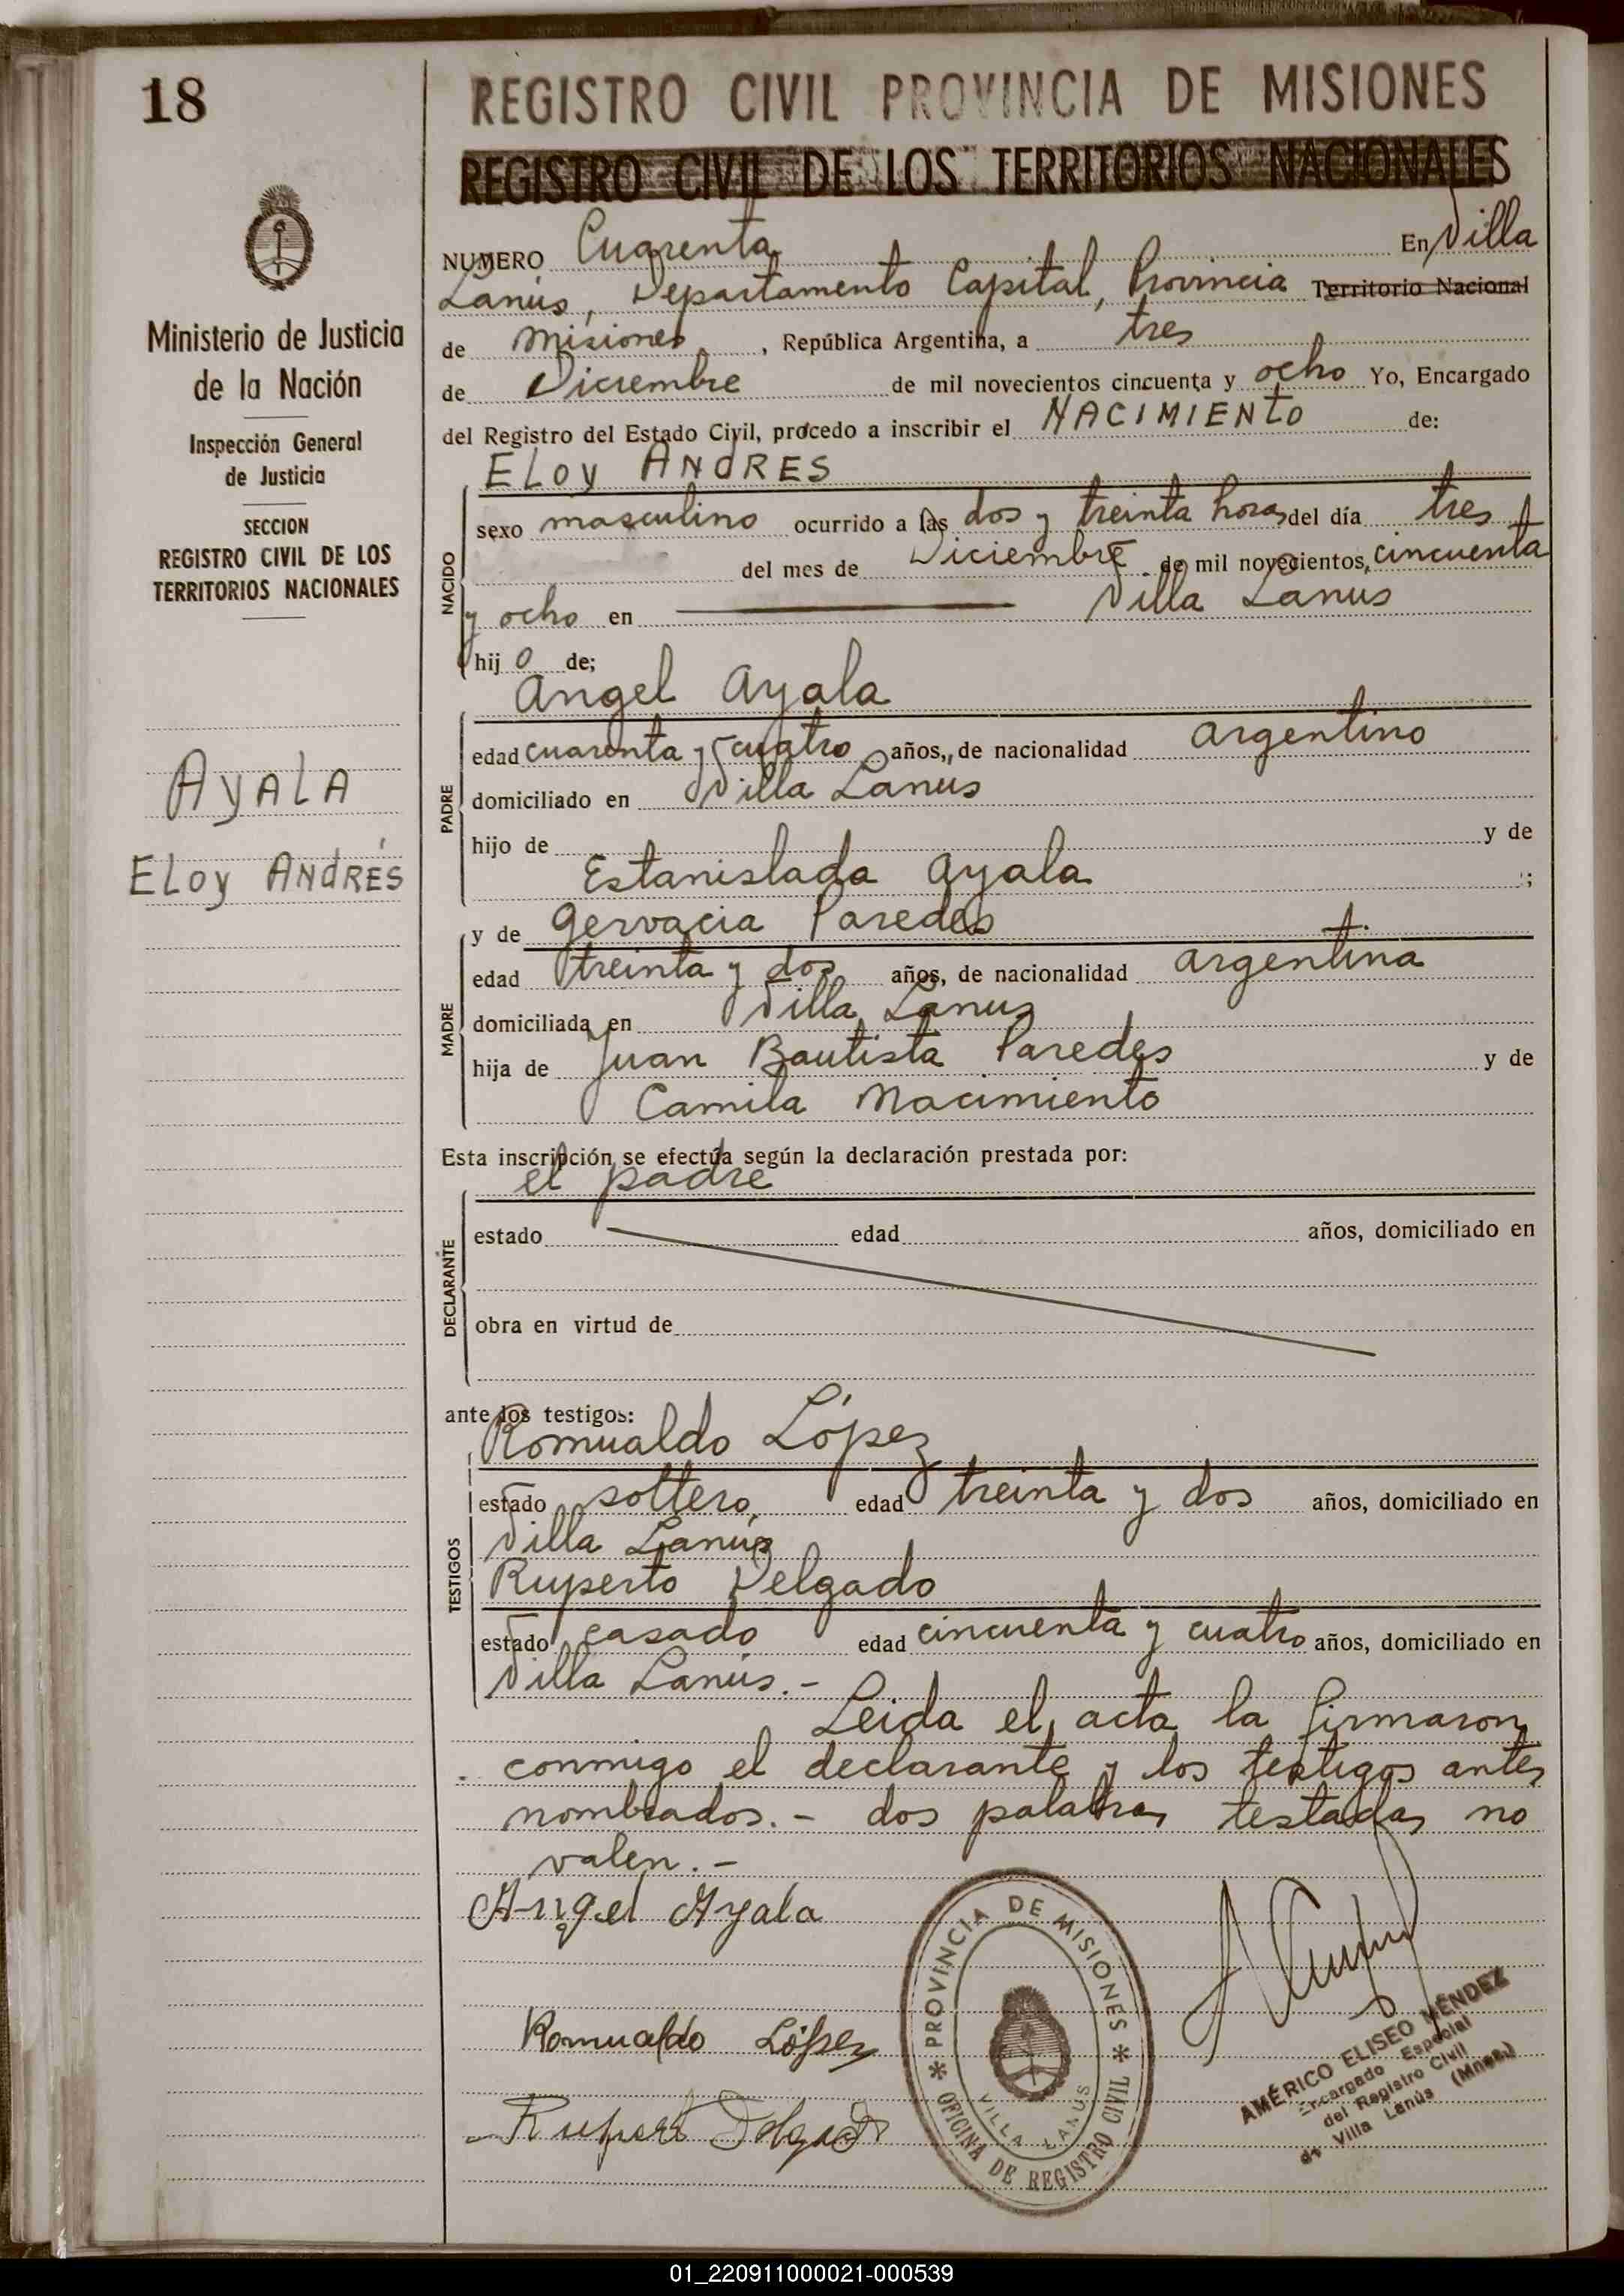 18
REGISTRO CIVIL PROVINCIA DE MISIONES
REGISTRO CIVIL DE LOS TERRITORIOS NACIONALES
Ministerio de Justicia
de la Nación
Inspección General
de Justicia
SECCION
REGISTRO CIVIL DE LOS
TERRITORIOS NACIONALES
AYALA
ELOY ANDRÉS
NUMERO Cuarenta En Villa
Lanús, Departamento Capital, Provincia Territorio Nacional
de Misiones, República Argentina, a tres
de Diciembre de mil novecientos cincuenta y ocho Yo, Encargado
del Registro del Estado Civil, procedo a inscribir el NACIMIENTO de:
ELOY ANDRES
NACIDO
sexo masculino ocurrido a las dos y treinta horas del día tres
del mes de Diciembre de mil novecientos, cincuenta
y ocho en Villa Lanús
hij o de;
Angel Ayala
PADRE
edad cuarenta y cuatro años,, de nacionalidad argentino
domiciliado en Villa Lanus
hijo de y de
Estanislada Ayala ;
y de Gervacia Paredes
MADRE
edad treinta y dos años, de nacionalidad argentina
domiciliada en Villa Lanus
hija de Juan Bautista Paredes y de
Camila Nacimiento
Esta inscripción se efectúa según la declaración prestada por:
el padre
DECLARANTE
estado edad años, domiciliado en
obra en virtud de
ante los testigos:
Romualdo López
TESTIGOS
estado soltero, edad treinta y dos años, domiciliado en
Villa Lanús
Ruperto Delgado
estado casado edad cincuenta y cuatro años, domiciliado en
Villa Lanús.-
Leida el acta la firmaron
conmigo el declarante y los testigos antes
nombrados.- dos palabras testadas no
valen.-
Angel Ayala
Romualdo López
Ruperto Delgado
PROVINCIA DE MISIONES
OFICINA DE REGISTRO CIVIL
VILLA LANUS
AMÉRICO ELISEO MÉNDEZ
Encargado Especial
del Registro Civil
de Villa Lanús (Mnes.)
01_220911000021-000539